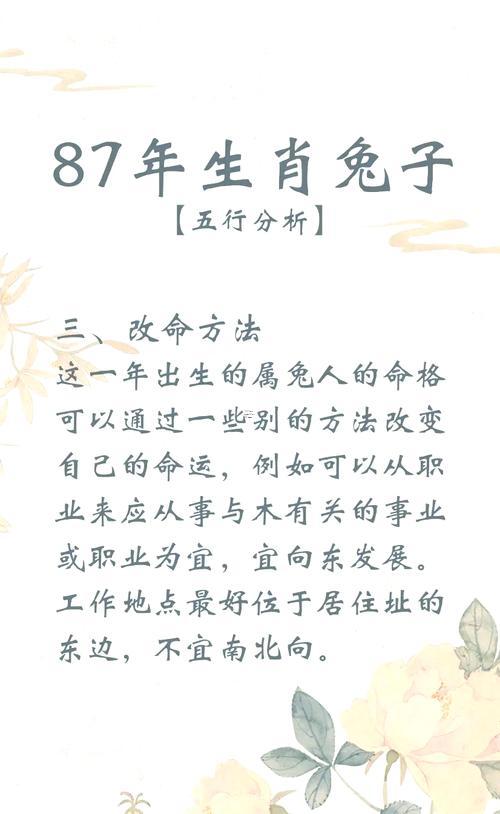 87年生肖兔子
【五行分析】
三、改命方法
这一年出生的属兔人的命格
可以通过一些别的方法改变
自己的命运，例如可以从职
业来应从事与木有关的事业
或职业为宜，宜向东发展。
工作地点最好位于居住址的
东边，不宜南北向。